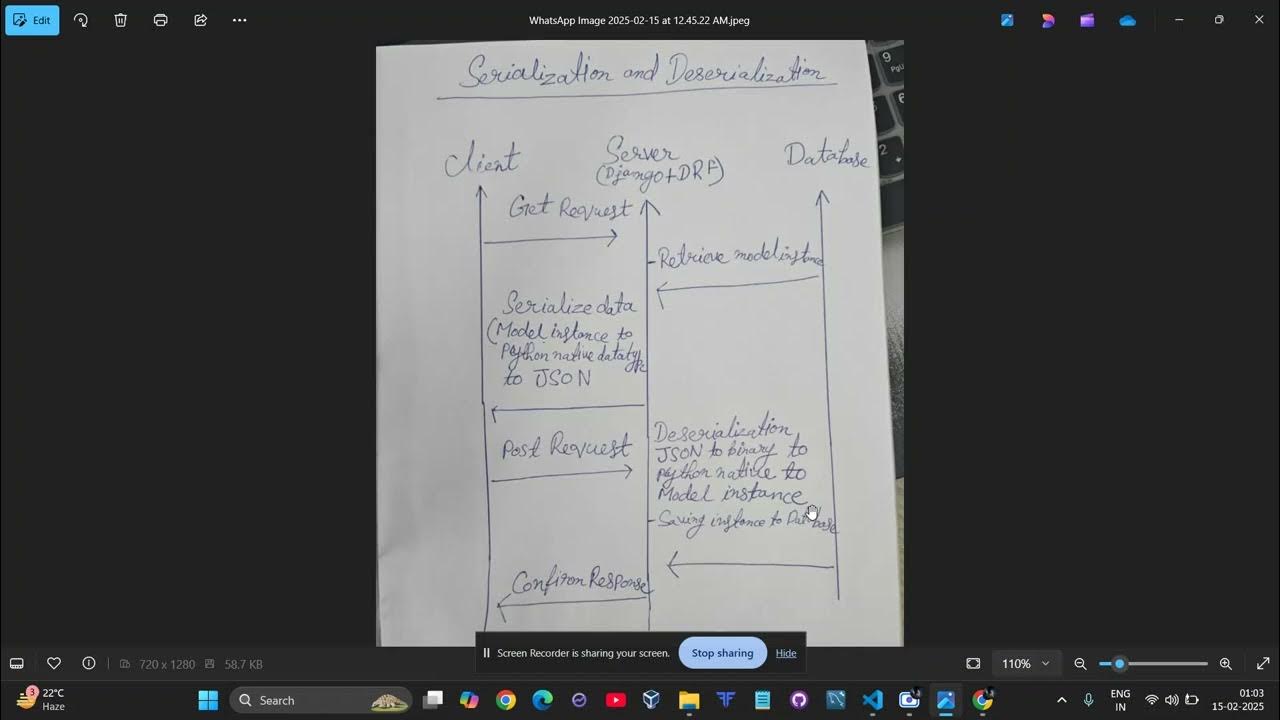 Edit
WhatsApp Image 2025-02-15 at 12.45.22 AM.jpeg
Serialization and Deserialization
Client
Server
(Django+DRF)
Database
Get Request
- Retrieve model instance
Serialize data
(Model instance to
python native datatype
to JSON
Post Request
Deserialization
JSON to binary to
python native to
Model instance
- Saving instance to Database
Confirm Response
9
PgU
6
2
Screen Recorder is sharing your screen.
Stop sharing
Hide
720 x 1280
58.7 KB
110%
3
22°C
Haze
Search
ENG
IN
01:03
15-02-2025